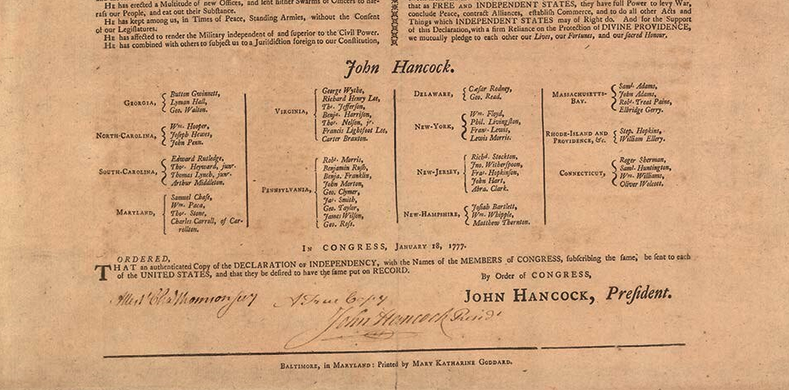 HE has erected a Multitude of new Offices, and sent hither Swarms of Officers to har-
rass our People, and eat out their Substance.
HE has kept among us, in Times of Peace, Standing Armies, without the Consent
of our Legislatures.
HE has affected to render the Military independent of and superior to the Civil Power.
HE has combined with others to subject us to a Jurisdiction foreign to our Constitution,
that as FREE AND INDEPENDENT STATES, they have full Power to levy War,
conclude Peace, contract Alliances, establish Commerce, and to do all other Acts and
Things which INDEPENDENT STATES may of Right do. And for the Support
of this Declaration, with a firm Reliance on the Protection of DIVINE PROVIDENCE,
we mutually pledge to each other our Lives, our Fortunes, and our sacred Honour.
John Hancock.
GEORGIA,
Button Gwinnett,
Lyman Hall,
Geo. Walton.
NORTH-CAROLINA,
Wm. Hooper,
Joseph Hewes,
John Penn.
SOUTH-CAROLINA,
Edward Rutledge,
Thos. Heyward, junr.
Thomas Lynch, junr.
Arthur Middleton.
MARYLAND,
Samuel Chase,
Wm. Paca,
Thos. Stone,
Charles Carroll, of Car-
rollton.
VIRGINIA,
George Wythe,
Richard Henry Lee,
Ths. Jefferson,
Benja. Harrison,
Thos. Nelson, jr.
Francis Lightfoot Lee,
Carter Braxton.
PENNSYLVANIA,
Robt. Morris,
Benjamin Rush,
Benja. Franklin,
John Morton,
Geo. Clymer,
Jas. Smith,
Geo. Taylor,
James Wilson,
Geo. Ross.
DELAWARE,
Cæsar Rodney,
Geo. Read.
NEW-YORK,
Wm. Floyd,
Phil. Livingston,
Frans. Lewis,
Lewis Morris.
NEW-JERSEY,
Richd. Stockton,
Jno. Witherspoon,
Fras. Hopkinson,
John Hart,
Abra. Clark.
NEW-HAMPSHIRE,
Josiah Bartlett,
Wm. Whipple,
Matthew Thornton.
MASSACHUSETTS-
BAY.
Saml. Adams,
John Adams,
Robt. Treat Paine,
Elbridge Gerry.
RHODE-ISLAND AND
PROVIDENCE, &c.
Step. Hopkins,
William Ellery.
CONNECTICUT,
Roger Sherman,
Saml. Huntington,
Wm. Williams,
Oliver Wolcott.
IN CONGRESS, JANUARY 18, 1777.
ORDERED,
THAT an authenticated Copy of the DECLARATION OF INDEPENDENCY, with the Names of the MEMBERS OF CONGRESS, subscribing the same, be sent to each
of the UNITED STATES, and that they be desired to have the same put on RECORD.
By Order of CONGRESS,
JOHN HANCOCK, President.
Attest Chas Thomson secy
A True Copy
John Hancock Presidt
BALTIMORE, IN MARYLAND: Printed by MARY KATHARINE GODDARD.